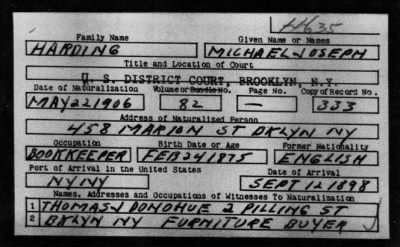 HH35
Family Name Given Name or Names
HARDING MICHAEL JOSEPH
Title and Location of Court
U. S. DISTRICT COURT, BROOKLYN, N.Y.
Date of Naturalization Volume or Bundle No. Page No. Copy of Record No.
MAY 22 1906 82 — 333
Address of Naturalized Person
458 MARION ST BKLYN NY
Occupation Birth Date or Age Former Nationality
BOOKKEEPER FEB 24 1875 ENGLISH
Port of Arrival in the United States Date of Arrival
NY NY SEPT 12 1898
Names, Addresses and Occupations of Witnesses To Naturalization
1 THOMAS J DONOHUE 2 PILLING ST
2 BKLYN NY FURNITURE BUYER